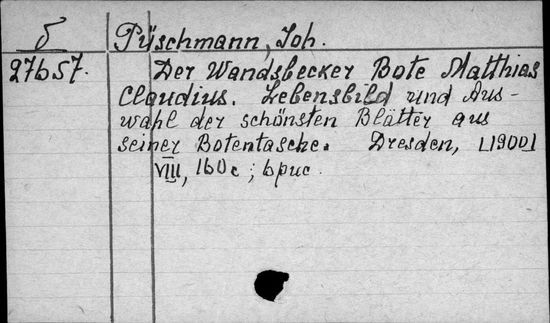 5 Püschmann, Joh.
27657. Der Wandsbecker Bote Matthias
Claudius. Lebensbild und Aus-
wahl der schönsten Blätter aus
seiner Botentasche. Dresden, [1900]
VIII, 160 с; 6 рис.